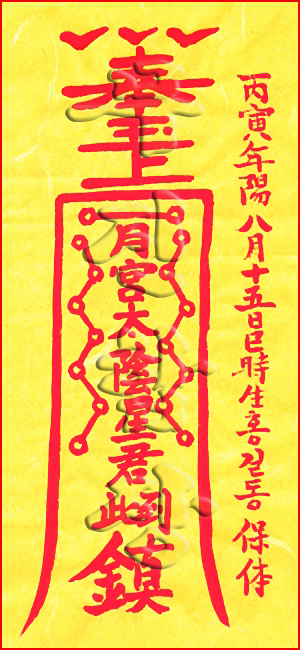 丙寅年陽八月十五日巳時生홍길동保体
月宮太陰星君此鎮